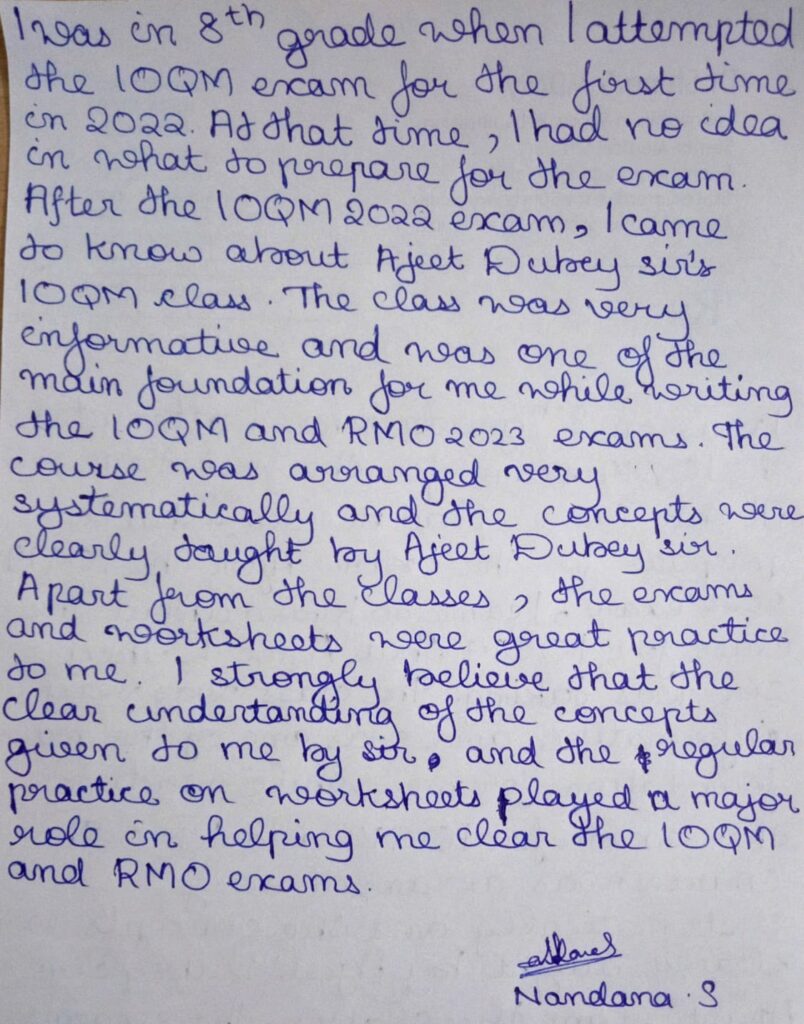 I was in 8th grade when I attempted
the IOQM exam for the first time
in 2022. At that time, I had no idea
in what to prepare for the exam.
After the IOQM 2022 exam, I came
to know about Ajeet Dubey sir's
IOQM class. The class was very
informative and was one of the
main foundation for me while writing
the IOQM and RMO 2023 exams. The
course was arranged very
systematically and the concepts were
clearly taught by Ajeet Dubey sir.
Apart from the classes, the exams
and worksheets were great practice
to me. I strongly believe that the
clear understanding of the concepts
given to me by sir, and the regular
practice on worksheets played a major
role in helping me clear the IOQM
and RMO exams.
Nandana.S